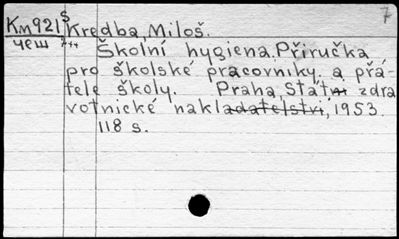 7
Км921 S Kredba, Miloš.
чеш 7-14
Školní hygiena. Příručka
pro školské pracovníky a přá-
tele školy. Praha, Státní zdra
votnické nakladatelství, 1953.
118 s.